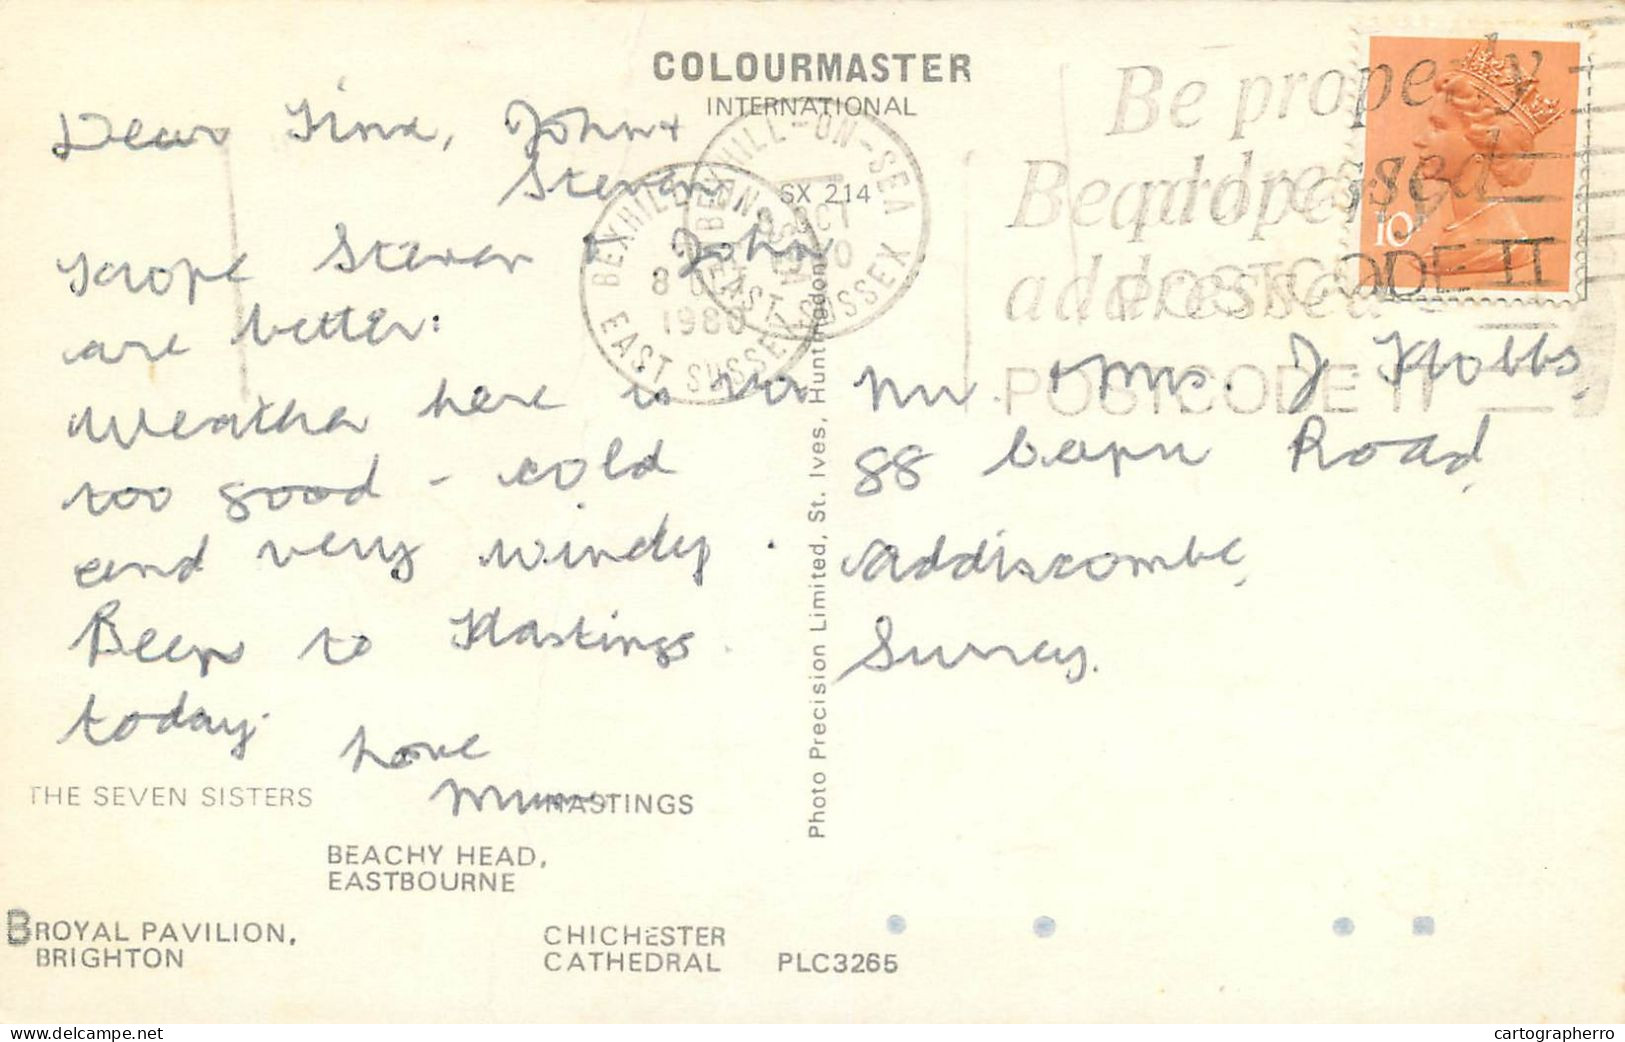 COLOURMASTER
INTERNATIONAL
SX 214
Dear Tina, John +
Steven
Hope Steven + John
are better.
Weather here is
too good - cold
and very windy.
Been to Hastings
today.
Love
Mum
Be properly
addressed
POSTCODE IT
Be properly
addressed
POSTCODE IT
BEXHILL-ON-SEA
8 OCT
1980
EAST SUSSEX
BEXHILL-ON-SEA
OCT
EAST SUSSEX
10
Mr + Mrs. J Hobbs,
88 Road,
Addiscombe,
Surrey.
Photo Precision Limited, St. Ives, Huntingdon
THE SEVEN SISTERS
HASTINGS
BEACHY HEAD,
EASTBOURNE
B
ROYAL PAVILION,
BRIGHTON
CHICHESTER
CATHEDRAL
PLC3265
delcampe.net
cartographerro